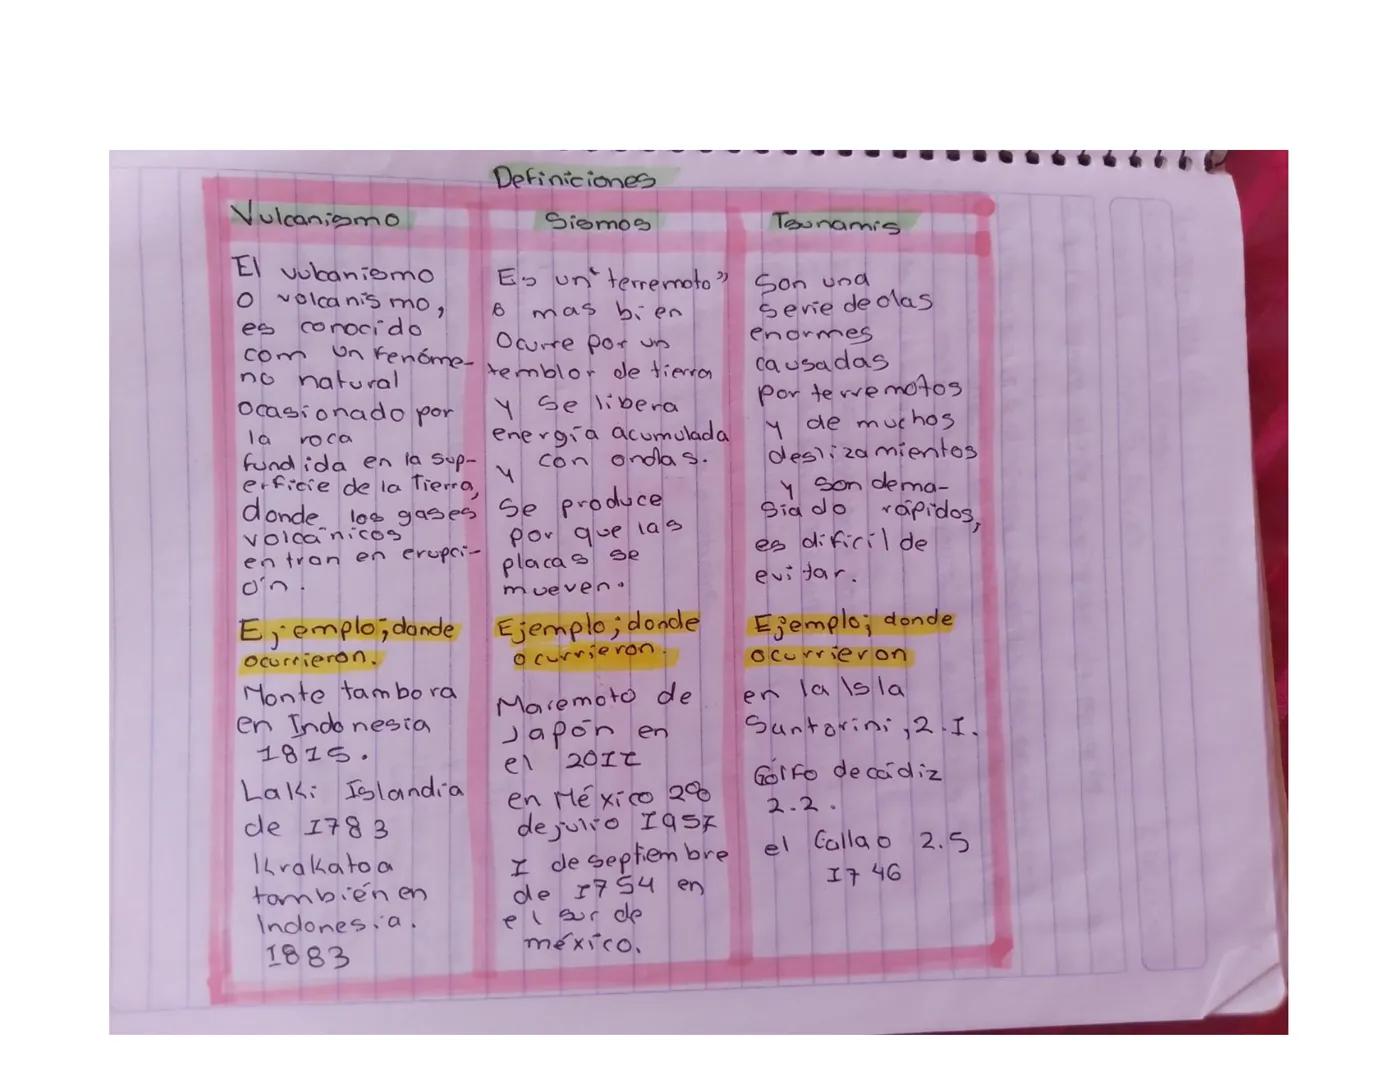 Definiciones
Vulcanismo
El vulcanismo
o volcanismo,
es conocido
com un fenóme-
no natural
ocasionado por
la roca
fundida en la sup-
erficie de la Tierra,
donde los gases
volcánicos
entran en erupci-
ón.
Ejemplo; donde
ocurrieron.
Monte tambora
en Indonesia
1815.
Laki Islandia
de 1783
Krakatoa
también en
Indonesia.
1883
Sismos
Es un "terremoto"
o mas bien
Ocurre por un
temblor de tierra
y se libera
energía acumulada
y con ondas.
Se produce
por que las
placas se
mueven.
Ejemplo; donde
ocurrieron.
Maremoto de
Japón en
el 2011
en México 28
de julio 1957
I de septiembre
de 1754 en
el sur de
méxico.
Tsunamis
Son una
serie de olas
enormes
causadas
por terremotos
y de muchos
deslizamientos
y son dema-
siado rápidos,
es dificil de
evitar.
Ejemplo; donde
ocurrieron
en la Isla
Santorini, 2.I.
Golfo de cádiz
2.2.
el Callao 2.5
1746